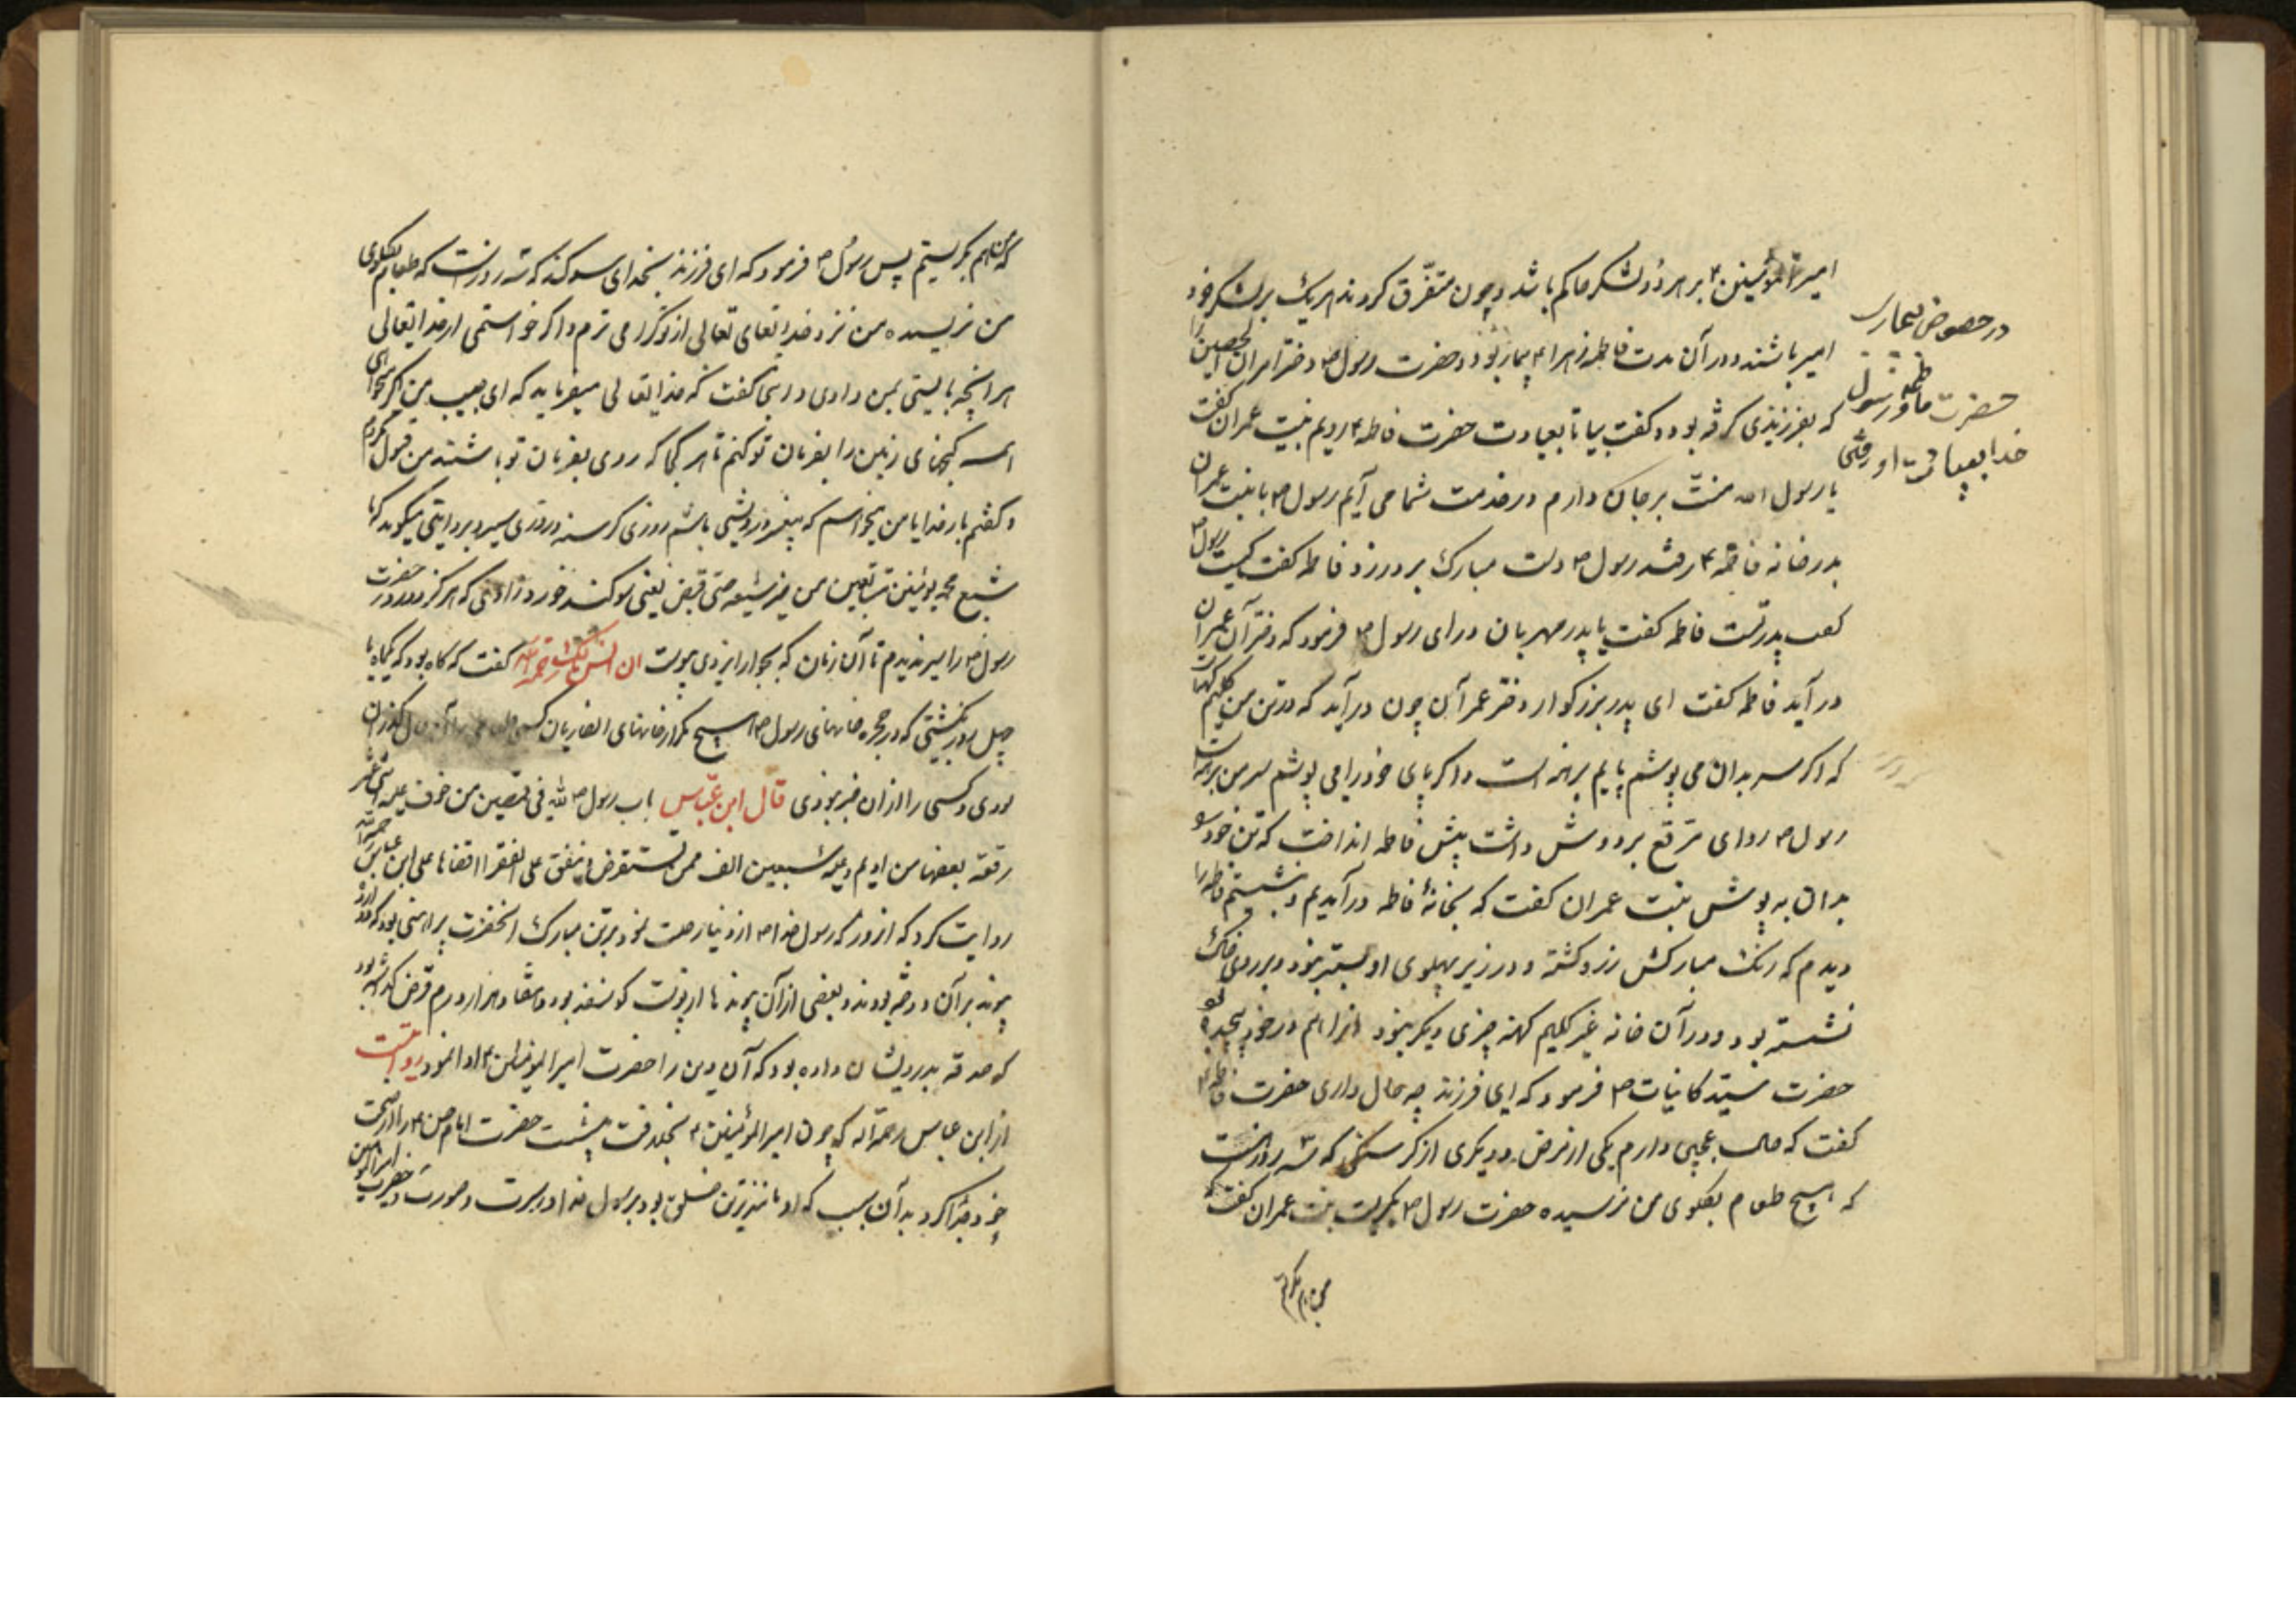 امیرالمؤمنین ۴ بر هر دو لشکر حاکم باشد و چون متفرّق کردند هر یک بر لشکر خود
امیر باشند و در آن مدت فاطمه زهرا ۴ بیمار بود و حضرت رسول ۳ دختر عمران الحصین را
که بفرزندی کرفته بود و کفت بیا تا بعیادت حضرت فاطمه ۴ رویم بنت عمران کفت
یا رسول الله منّت بر جان دارم و در خدمت شما می آیم رسول ۳ با بنت عمران
بدر خانه فاطمه ۴ رفتند رسول ۳ دست مبارک بر در زد فاطمه کفت کیست رسول ۳
کفت پدر تست فاطمه کفت یا پدر مهربان در آی رسول ۳ فرمود که دختر آن عمران
در آید فاطمه کفت ای پدر بزرکوار دختر عمرآن چون در آید که در تن من کلیم کهنه است
که اکر سر بدان می پوشم پایم برهنه است و اکر پای خود را می پوشم سر من برهنه است
رسول ۳ ردای مرقع بر دوش داشت پیش فاطمه انداخت که تن خود
بدان به پوشش بنت عمران کفت که بخانهٔ فاطمه در آمدیم و نشستیم فاطمه را
دیدم که رنک مبارکش زرد کشته و در زیر پهلوی او بستر نبود و بر روی خاک
نشسته بود و در آن خانه غیر کلیم کهنه چیزی دیکر نبود آنرا هم در خود پیچیده بود
حضرت سیّد کاینات ۳ فرمود که ای فرزند چه حال داری حضرت فاطمه ۴
کفت که حال عجبی دارم یکی از مرض و دیکری از کرسنکی که سه روز است
که هیچ طعام بکلوی من نرسیده حضرت رسول ۳ بکریست بنت عمران کفت که
من هم بکریستم
در خصوص بیماری
حضرت فاطمه و رسول
خدا بعیادت او رفتن
که من هم بکریستم پس رسول ۳ فرمود که ای فرزند بخدای سوکند که سه روز است که طعام بکلوی
من نرسیده و من نزد خدایتعالی از تو کرامی ترم و اکر خواستمی از خدایتعالی
هر آنچه بایستی بمن دادی و راستی کفت که خدایتعالی میفرماید که ای حبیب من اکر خواهی
همه کنجهای زمین را بفرمان تو کنم تا هر کجا که روی بفرمان تو باشند من قبول نکردم
و کفتم بار خدایا من میخواهم که پیغمبر درویشی باشم روزی کرسنه و روزی سیر و بروایتی میکوید که
شبع محمد یومین متتابعین من خبز شعیر حتی قبض یعنی سوکند خورد که هرکز دو روز حضرت
رسول ۳ را سیر ندیدم تا آن زمان که بجوار ایزدی پیوست انس مالک رحمة الله کفت که کاه بود که یکماه یا
چهل روز بکشتی که در حجره خانهای رسول ۳ هیچ مکر از خانهای انصاریان
بودی و کسی را از آن خبر نبودی قال ابن عبّاس
رقعة بعضها من ادیم و علیه سبعین الف ممن تستقرض و ینفق علی الفقرا اقضاها علی ابن عباس رحمة الله
روایت کرد که آنروز که رسول خدا ۳ از دنیا رحلت نمود بر تن مبارک آنحضرت پیراهنی بود که دوازده
پیوند بر آن دوخته بودند و بعضی از آن پیوندها از پوست کوسفند بود و هفتاد هزار درم قرض کرده بود
که صدقه بدرویشان داده بود که آن دین را حضرت امیرالمؤمنین ۴ ادا نمود روایتست
از ابن عباس رحمة الله که چون امیرالمؤمنین ۴ بجنک رفت حضرت امام حسن ۴ را از صحبت
خود جدا کرد بدآن سبب که او مانندترین خلق بود برسول خدا در سیرت و صورت و حضرت امیرالمؤمنین